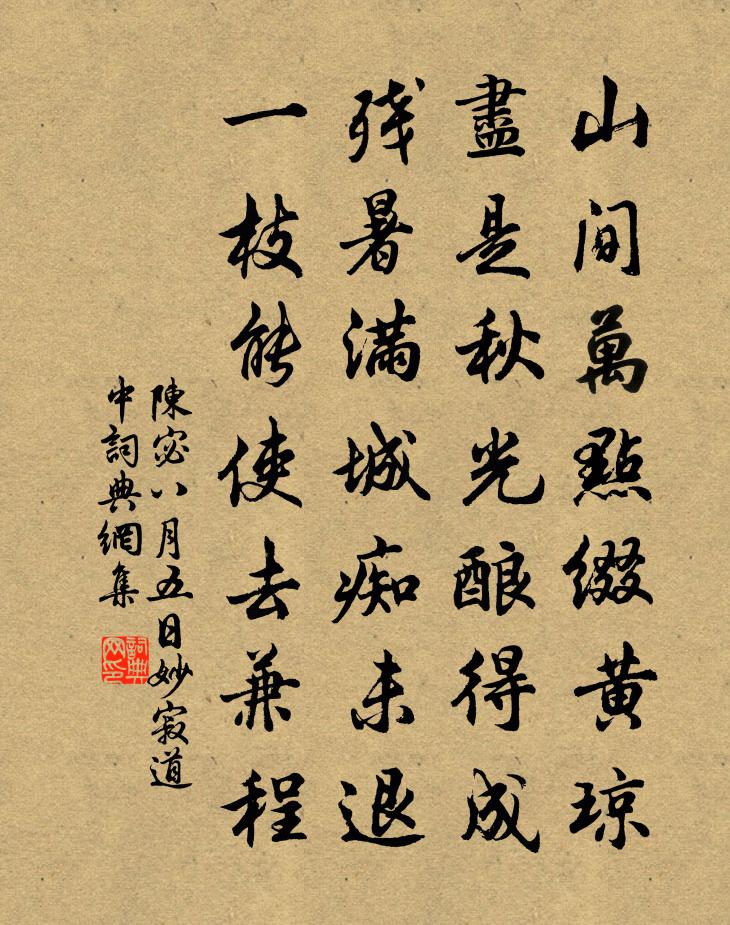 山間萬點綴黃琼
盡是秋光酿得成
残暑滿城痴未退
一枝能使去兼程
陳宓八月五日妙寂道
中詞典網集
詞典网印